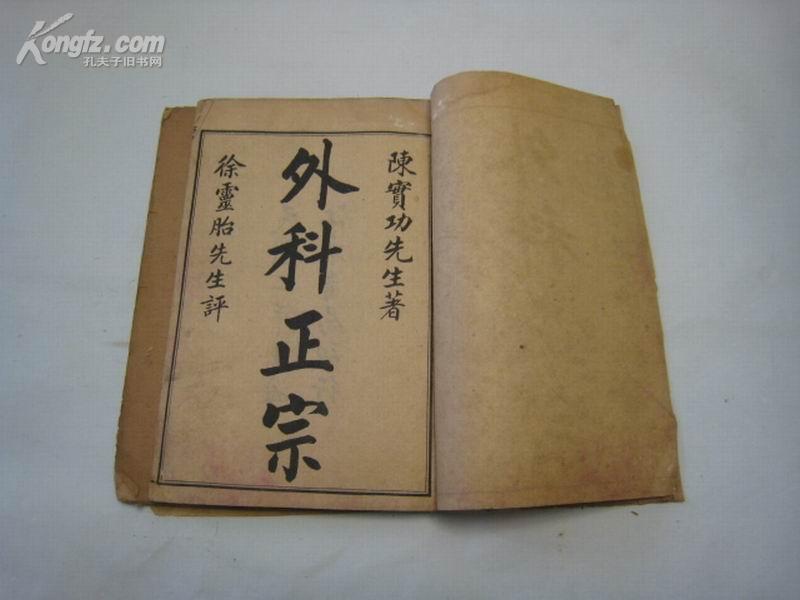 陳實功先生著
外科正宗
徐靈胎先生評
Kongfz.com
孔夫子旧书网